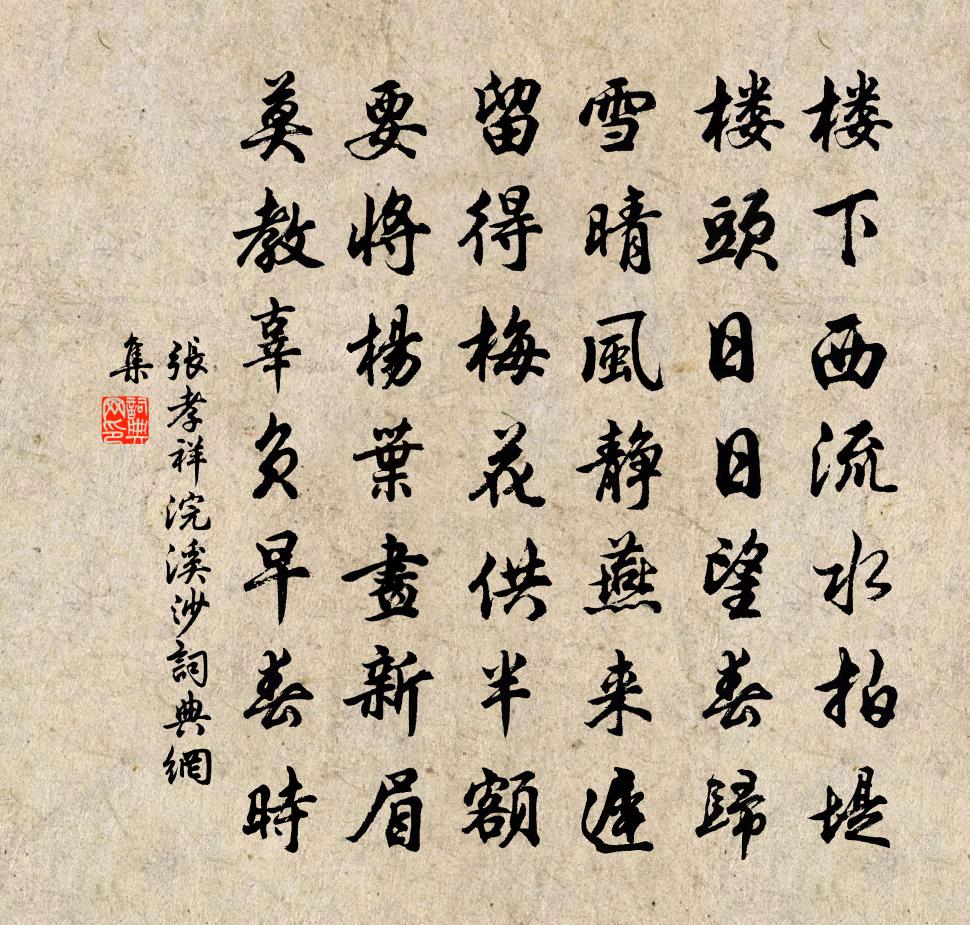 楼下西流水拍堤
楼頭日日望春歸
雪晴風静燕来遲
留得梅花供半額
要将楊葉畫新眉
莫教辜負早春時
張孝祥浣溪沙詞典網
集
詞典
网印